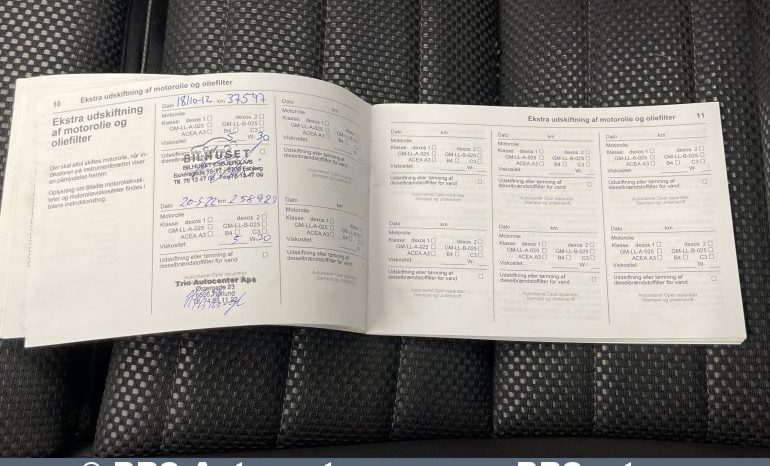 10 Ekstra udskiftning af motorolie og oliefilter
Ekstra udskiftning
af motorolie og
oliefilter
Der skal altid skiftes motorolie, når in-
dikatoren på instrumentbrættet viser
en påmindelse herom.
Oplysning om tilladte motoroliekvali-
teter og motorolieviskositeter findes i
bilens instruktionsbog.
Dato 18/10-12 km 37547
Motorolie
Klasse: dexos 1 dexos 2
GM-LL-A-025 GM-LL-B-025
ACEA A3 B4 C3
Viskositet: 5 W- 30
BILHUSET
Dato 20-5-22 km 256929
Motorolie
Klasse: dexos 1 dexos 2
GM-LL-A-025 GM-LL-B-025
ACEA A3 B4 C3
Viskositet: 5 W- 30
Udskiftning eller tømning af
dieselbrændstoffilter for vand
Autoriseret Opel reparatør
Trio Autocenter Aps
Dato km
Motorolie
Klasse: dexos 1
GM-LL-A-025
ACEA A3
Viskositet:
Udskiftning eller tømning af
Dato km
Motorolie
Klasse: dexos 1
GM-LL-A-025
ACEA A3
Viskositet:
Udskiftning eller tømning af
dieselbrændstoffilter for vand
Ekstra udskiftning af motorolie og oliefilter 11
Dato km
Motorolie
Klasse: dexos 1 dexos 2
GM-LL-A-025 GM-LL-B-025
ACEA A3 B4 C3
Viskositet: W-
Udskiftning eller tømning af
dieselbrændstoffilter for vand
Autoriseret Opel reparatør
Stempel og underskrift
Dato km
Motorolie
Klasse: dexos 1 dexos 2
GM-LL-A-025 GM-LL-B-025
ACEA A3 B4 C3
Viskositet: W-
Udskiftning eller tømning af
dieselbrændstoffilter for vand
Autoriseret Opel reparatør
Stempel og underskrift
Dato km
Motorolie
Klasse: dexos 1 dexos 2
GM-LL-A-025 GM-LL-B-025
ACEA A3 B4 C3
Viskositet: W-
Udskiftning eller tømning af
dieselbrændstoffilter for vand
Autoriseret Opel reparatør
Stempel og underskrift
Dato km
Motorolie
Klasse: dexos 1 dexos 2
GM-LL-A-025 GM-LL-B-025
ACEA A3 B4 C3
Viskositet: W-
Udskiftning eller tømning af
dieselbrændstoffilter for vand
Autoriseret Opel reparatør
Stempel og underskrift
Dato km
Motorolie
Klasse: dexos 1 dexos 2
GM-LL-A-025 GM-LL-B-025
ACEA A3 B4 C3
Viskositet: W-
Udskiftning eller tømning af
dieselbrændstoffilter for vand
Autoriseret Opel reparatør
Stempel og underskrift
Dato km
Motorolie
Klasse: dexos 1 dexos 2
GM-LL-A-025 GM-LL-B-025
ACEA A3 B4 C3
Viskositet: W-
Udskiftning eller tømning af
dieselbrændstoffilter for vand
Autoriseret Opel reparatør
Stempel og underskrift